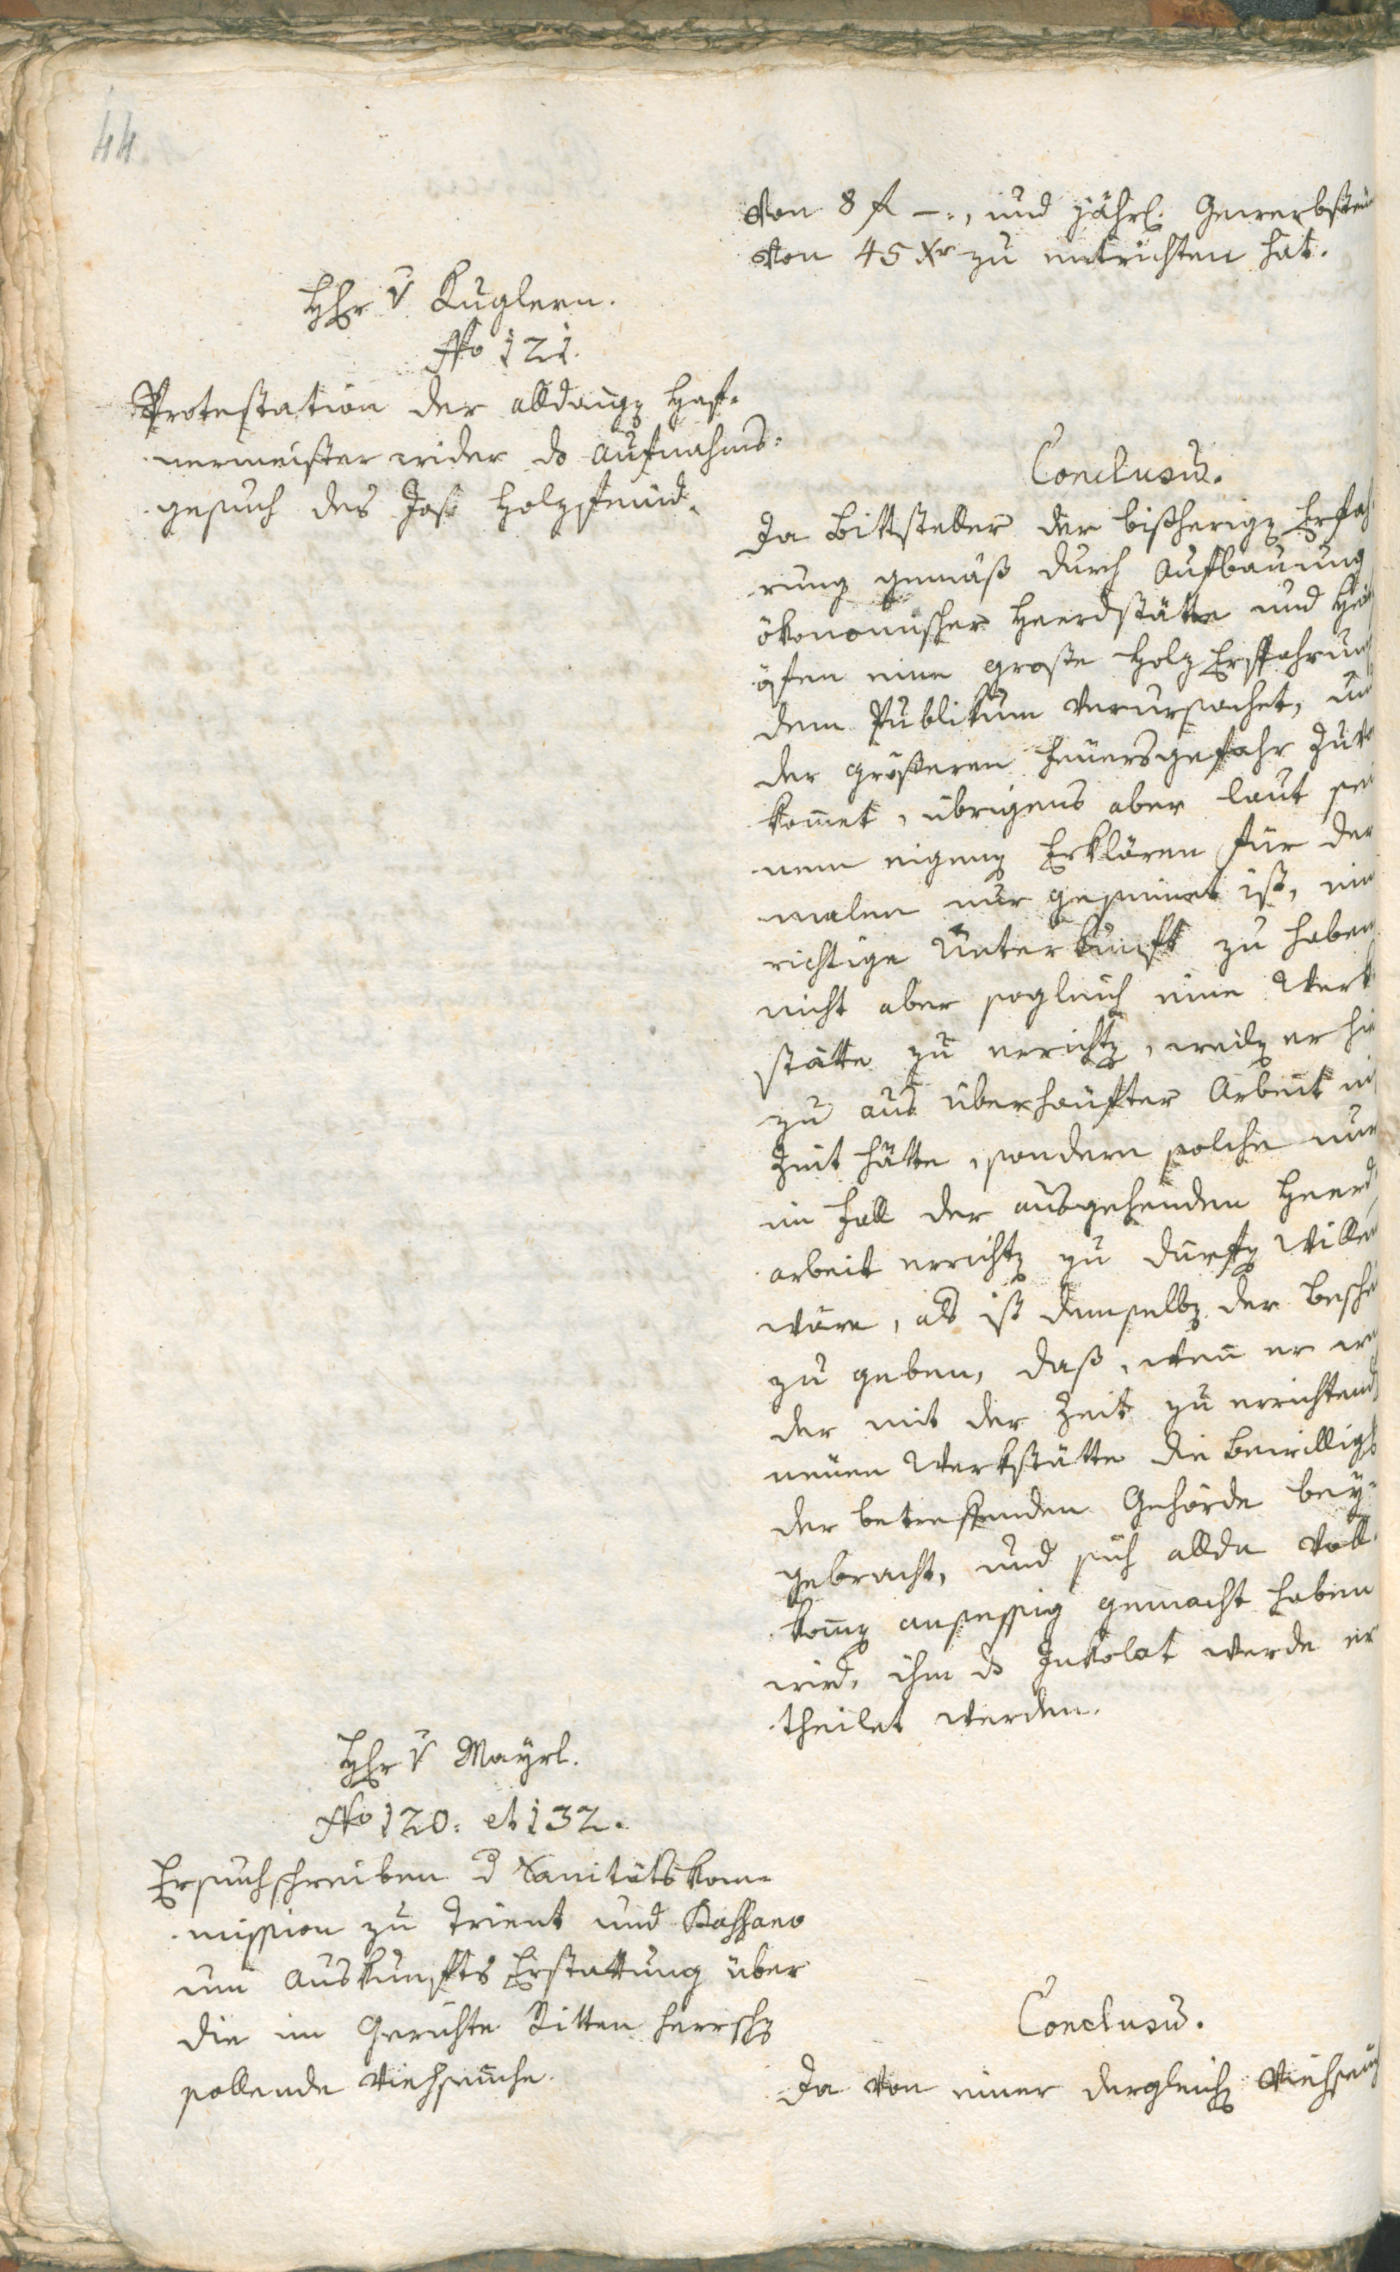 44
von 8 f –., und jährl. Gewerbsteü
von 45 Xr zu entrichten hat.
HHr v Kuglern.
No 121.
Protestation der alldaigen Haf-
nermeister wider ds Aufnahms-
gesuch des Jos Holzfeind.
Conclusũ.
Da Bittsteller der bißherigen Erfah
rung gemäß durch Aufbauung
ökonomischer Heerdstätte und Heitz
öfen eine große Holz Ersparung
dem Publikum verursachet, und
der größeren Feuersgefahr zuvor
kom̃et, übrigens aber laut sei
nem eigenen Erklären für der
malen nur gesinnet ist, ein
richtige Unterkunft zu haben
nicht aber sogleich eine Werk
stätte zu errichten, weilen er hie
zu aus überhäufter Arbeit ni
Zeit hätte, sondern solche nur
im Fall der ausgehenden Heerd
arbeit errichten zu dürfen willen
wäre, als ist demselben der Beschei
zu geben, daß, wen̄ er we
der mit der Zeit zu errichtend
neuen Werkstätte die Bewilligg
der betreffenden Gehörde bey-
gebracht, und sich allda voll-
kom̃en ansessig gemacht haben
wird, ihm ds Inkolat werde er
theilet werden.
HHr v Mayrl.
No 120. et 132.
Ersuchschreiben d Sanitätskom-
mission zu Trient und Bassano
um Auskunfts Erstattung über
die im Gerichte Ritten herrschen
sollende Viehseuche.
Conclusũ.
Da von einer dergleichen Viehseuch